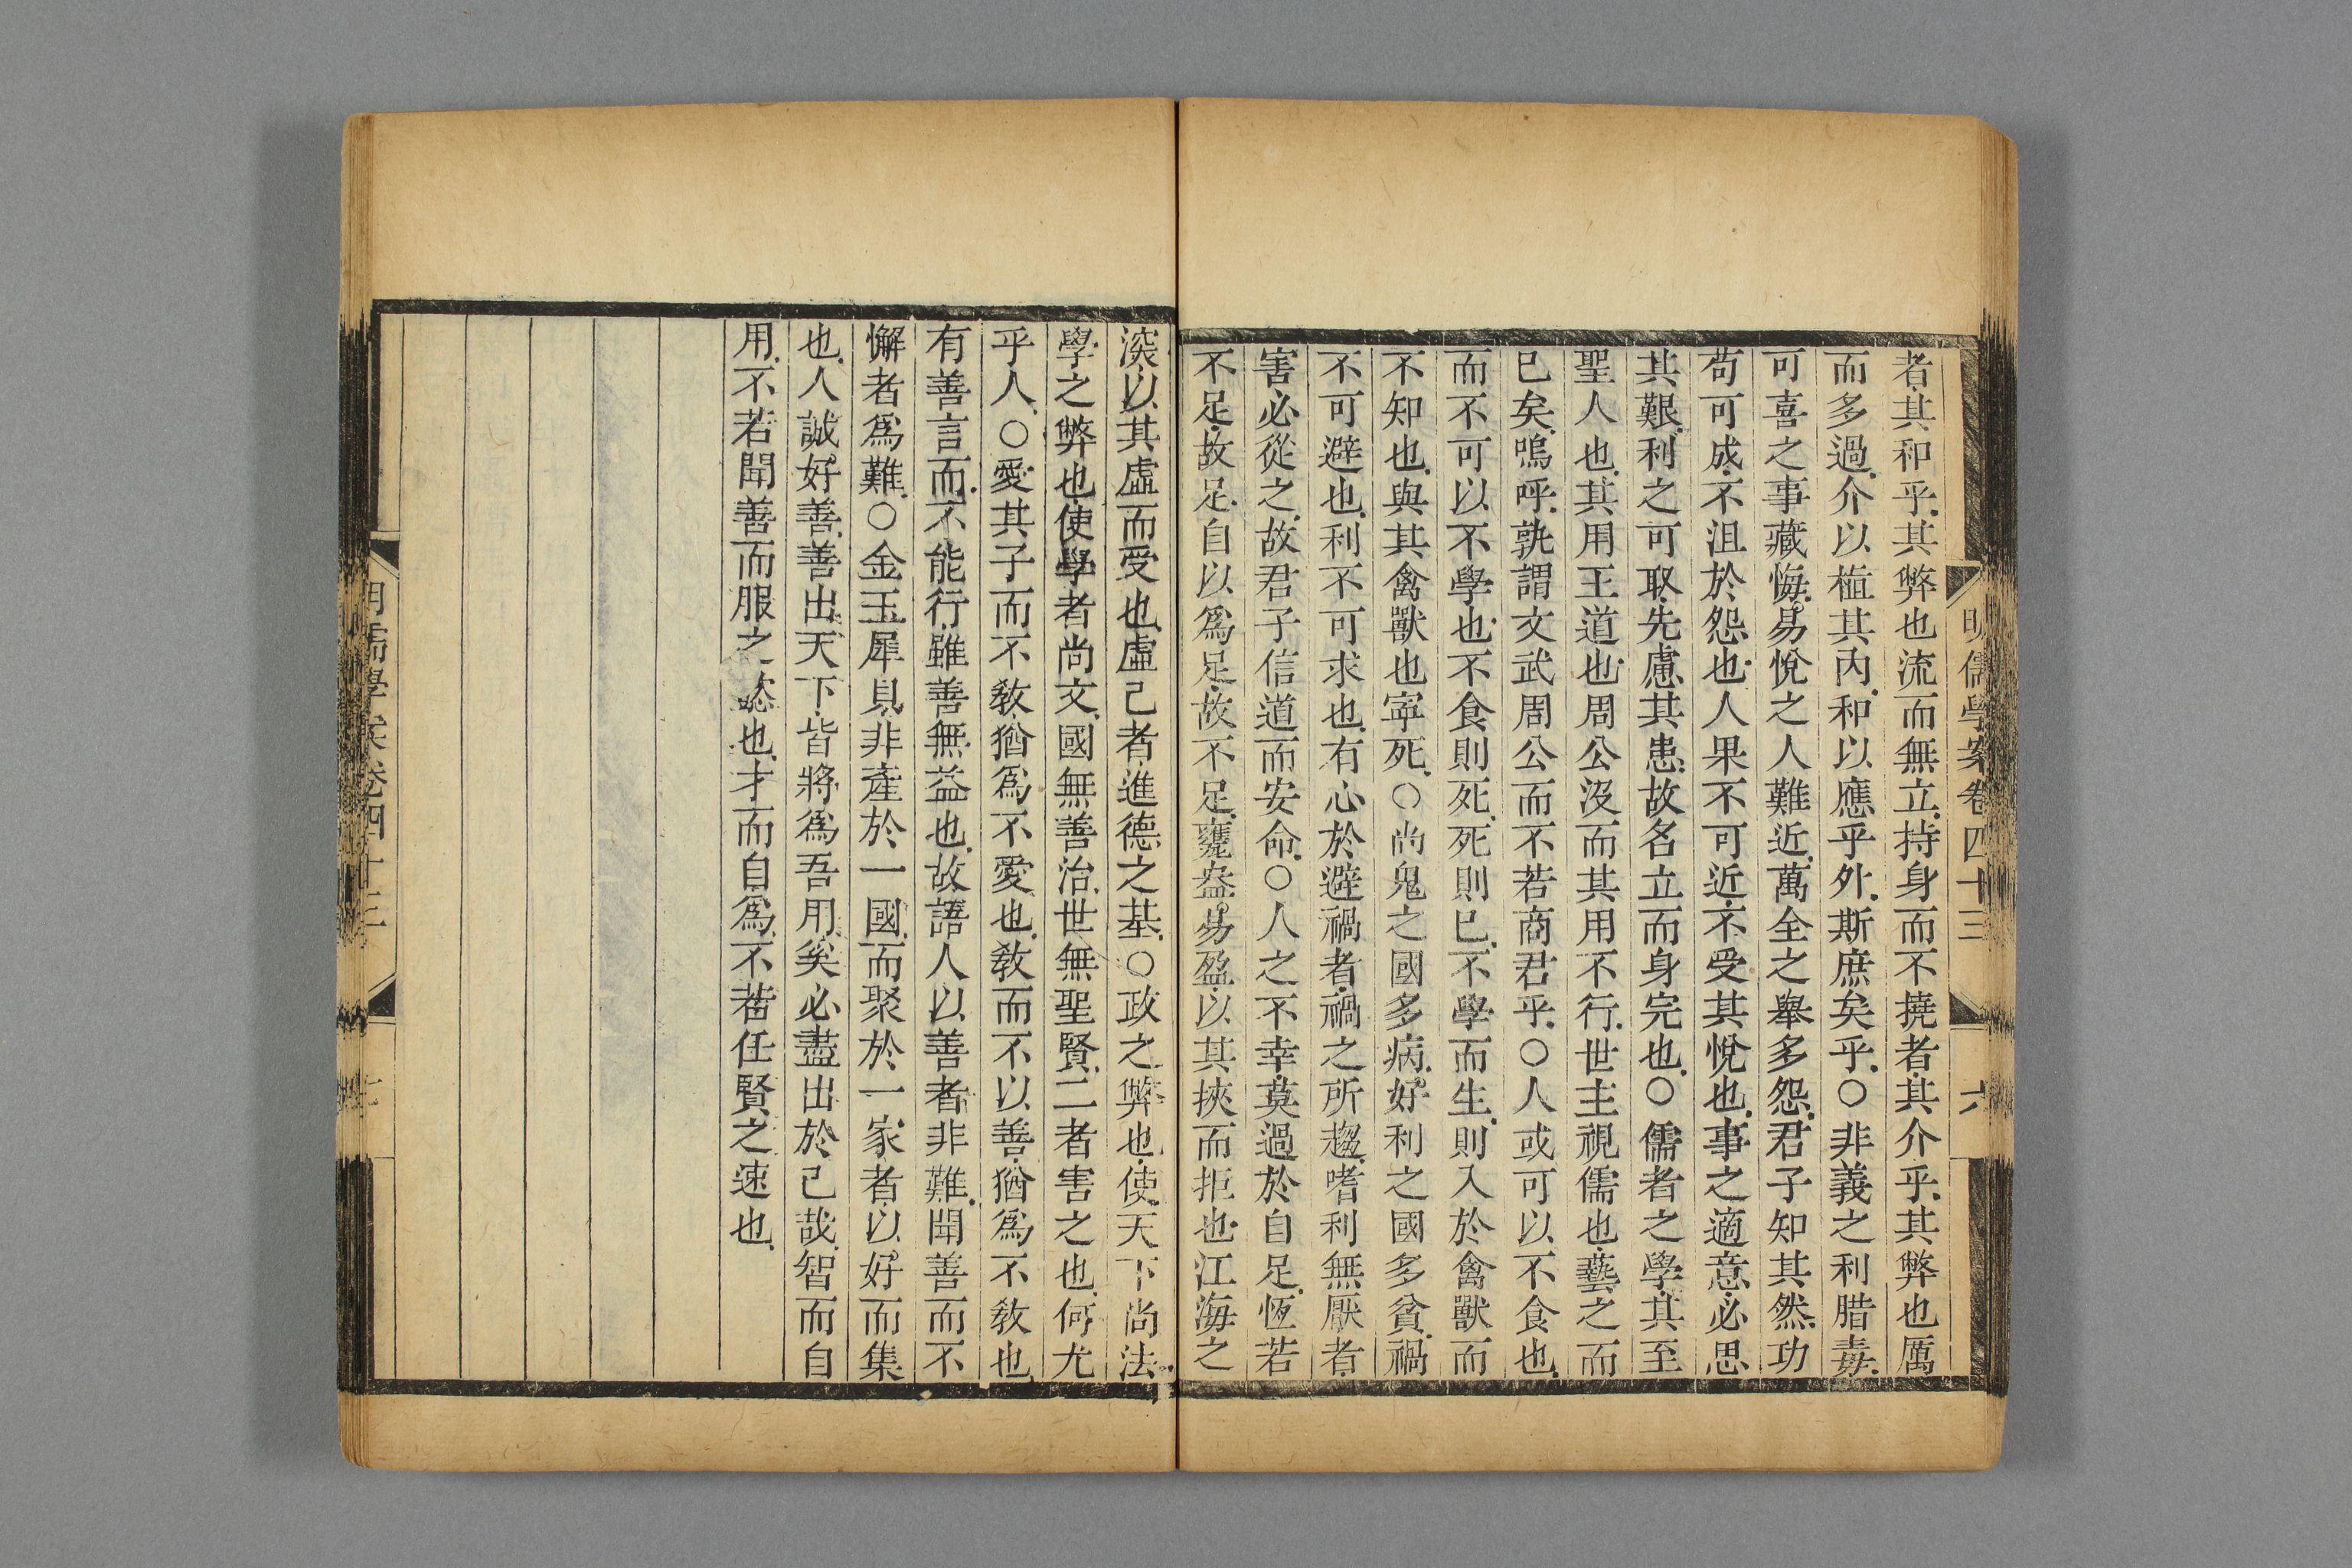 明儒學案卷四十三
六
者其和乎其弊也流而無立持身而不撓者其介乎其弊也厲
而多過介以植其內和以應乎外斯庶矣乎○非義之利腊毒
可喜之事藏悔易悅之人難近萬全之舉多怨君子知其然功
苟可成不沮於怨也人果不可近不受其悅也事之適意必思
其艱利之可取先慮其患故名立而身完也○儒者之學其至
聖人也其用王道也周公沒而其用不行世主視儒也藝之而
巳矣嗚呼孰謂文武周公而不若商君乎○人或可以不食也
而不可以不學也不食則死死則巳不學而生則入於禽獸而
不知也與其禽獸也寧死○尚鬼之國多病好利之國多貧禍
不可避也利不可求也有心於避禍者禍之所趨嗜利無厭者
害必從之故君子信道而安命○人之不幸莫過於自足恆若
不足故足自以爲足故不足甕盎易盈以其挾而拒也江海之
深以其虛而受也虛己者進德之基○政之弊也使天下尚法
學之弊也使學者尚文國無善治世無聖賢二者害之也何尤
乎人○愛其子而不敎猶爲不愛也敎而不以善猶爲不敎也
有善言而不能行雖善無益也故語人以善者非難聞善而不
懈者爲難○金玉犀貝非產於一國而聚於一家者以好而集
也人誠好善善出天下皆將爲吾用矣必盡出於己哉智而自
用不若聞善而服之
也才而自爲不若任賢之速也
明儒學案卷四十三
七